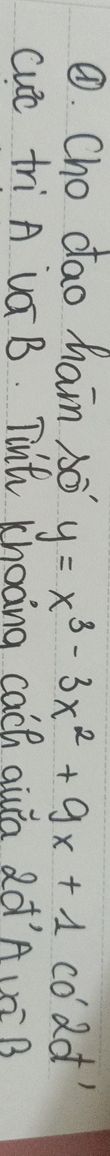 ①. Cho đao hàm số y = x³ - 3x² + 9x + 1 có 2đ'
cực trị A và B. Tính khoảng cách giữa 2đ' A và B